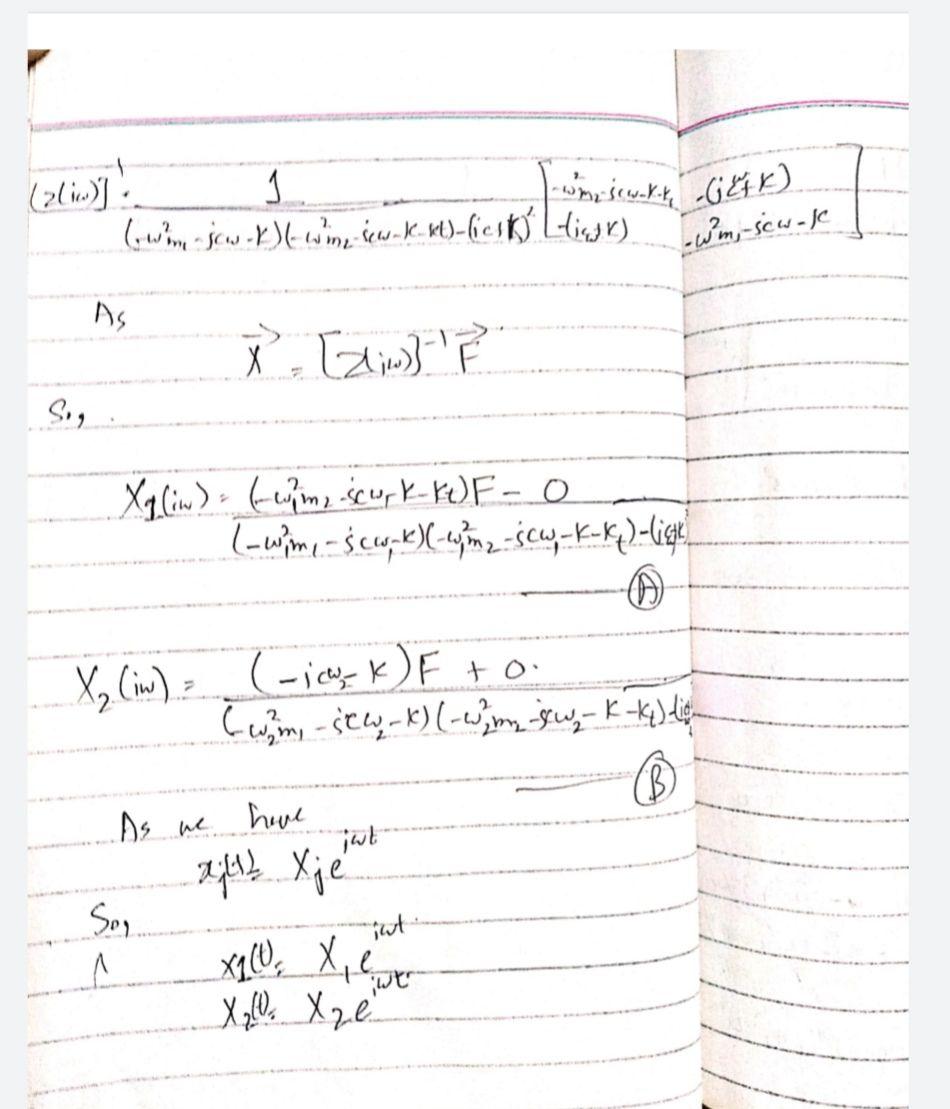 [z(iω)]⁻¹ = 1 / (-ω²m₁ - icω - k)(-ω²m₂ - icω - k - kt) - (icω + k)² [ -ω²m₂ - icω - k - kt   -(icω + k)
-(icω + k)   -ω²m₁ - icω - k ]
As
X⃗ = [z(iω)]⁻¹ F⃗
So,
X₁(iω) = (-ω₁²m₂ - icω₁ - k - kt)F - 0
(-ω₁²m₁ - icω₁ - k)(-ω₁²m₂ - icω₁ - k - kt) - (
(A)
X₂(iω) = (-icω₂ - k)F + 0.
(-ω₂²m₁ - icω₂ - k)(-ω₂²m₂ - icω₂ - k - kt) - (
(B)
As we have
xj(t) = Xj e^iωt
So,
x1(t) = X₁ e^iωt
X₂(t) = X₂ e^iωt